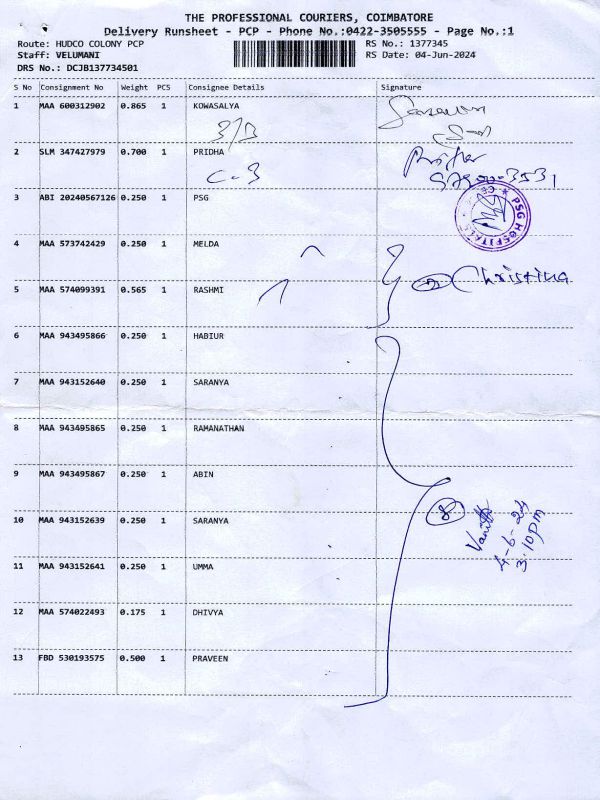 THE PROFESSIONAL COURIERS, COIMBATORE
Delivery Runsheet - PCP - Phone No.:0422-3505555 - Page No.:1
Route: HUDCO COLONY PCP RS No.: 1377345
Staff: VELUMANI RS Date: 04-Jun-2024
DRS No.: DCJB137734501
S No Consignment No Weight PCS Consignee Details Signature
1 MAA 600312902 0.865 1 KOWASALYA
3/B
2 SLM 347427979 0.700 1 PRIDHA
C-3
3 ABI 20240567126 0.250 1 PSG
PSG HOSPITALS
4 MAA 573742429 0.250 1 MELDA
Christina
5 MAA 574099391 0.565 1 RASHMI
6 MAA 943495866 0.250 1 HABIUR
7 MAA 943152640 0.250 1 SARANYA
8 MAA 943495865 0.250 1 RAMANATHAN
9 MAA 943495867 0.250 1 ABIN
8
4-6-24
3.10pm
10 MAA 943152639 0.250 1 SARANYA
11 MAA 943152641 0.250 1 UMMA
12 MAA 574022493 0.175 1 DHIVYA
13 FBD 530193575 0.500 1 PRAVEEN